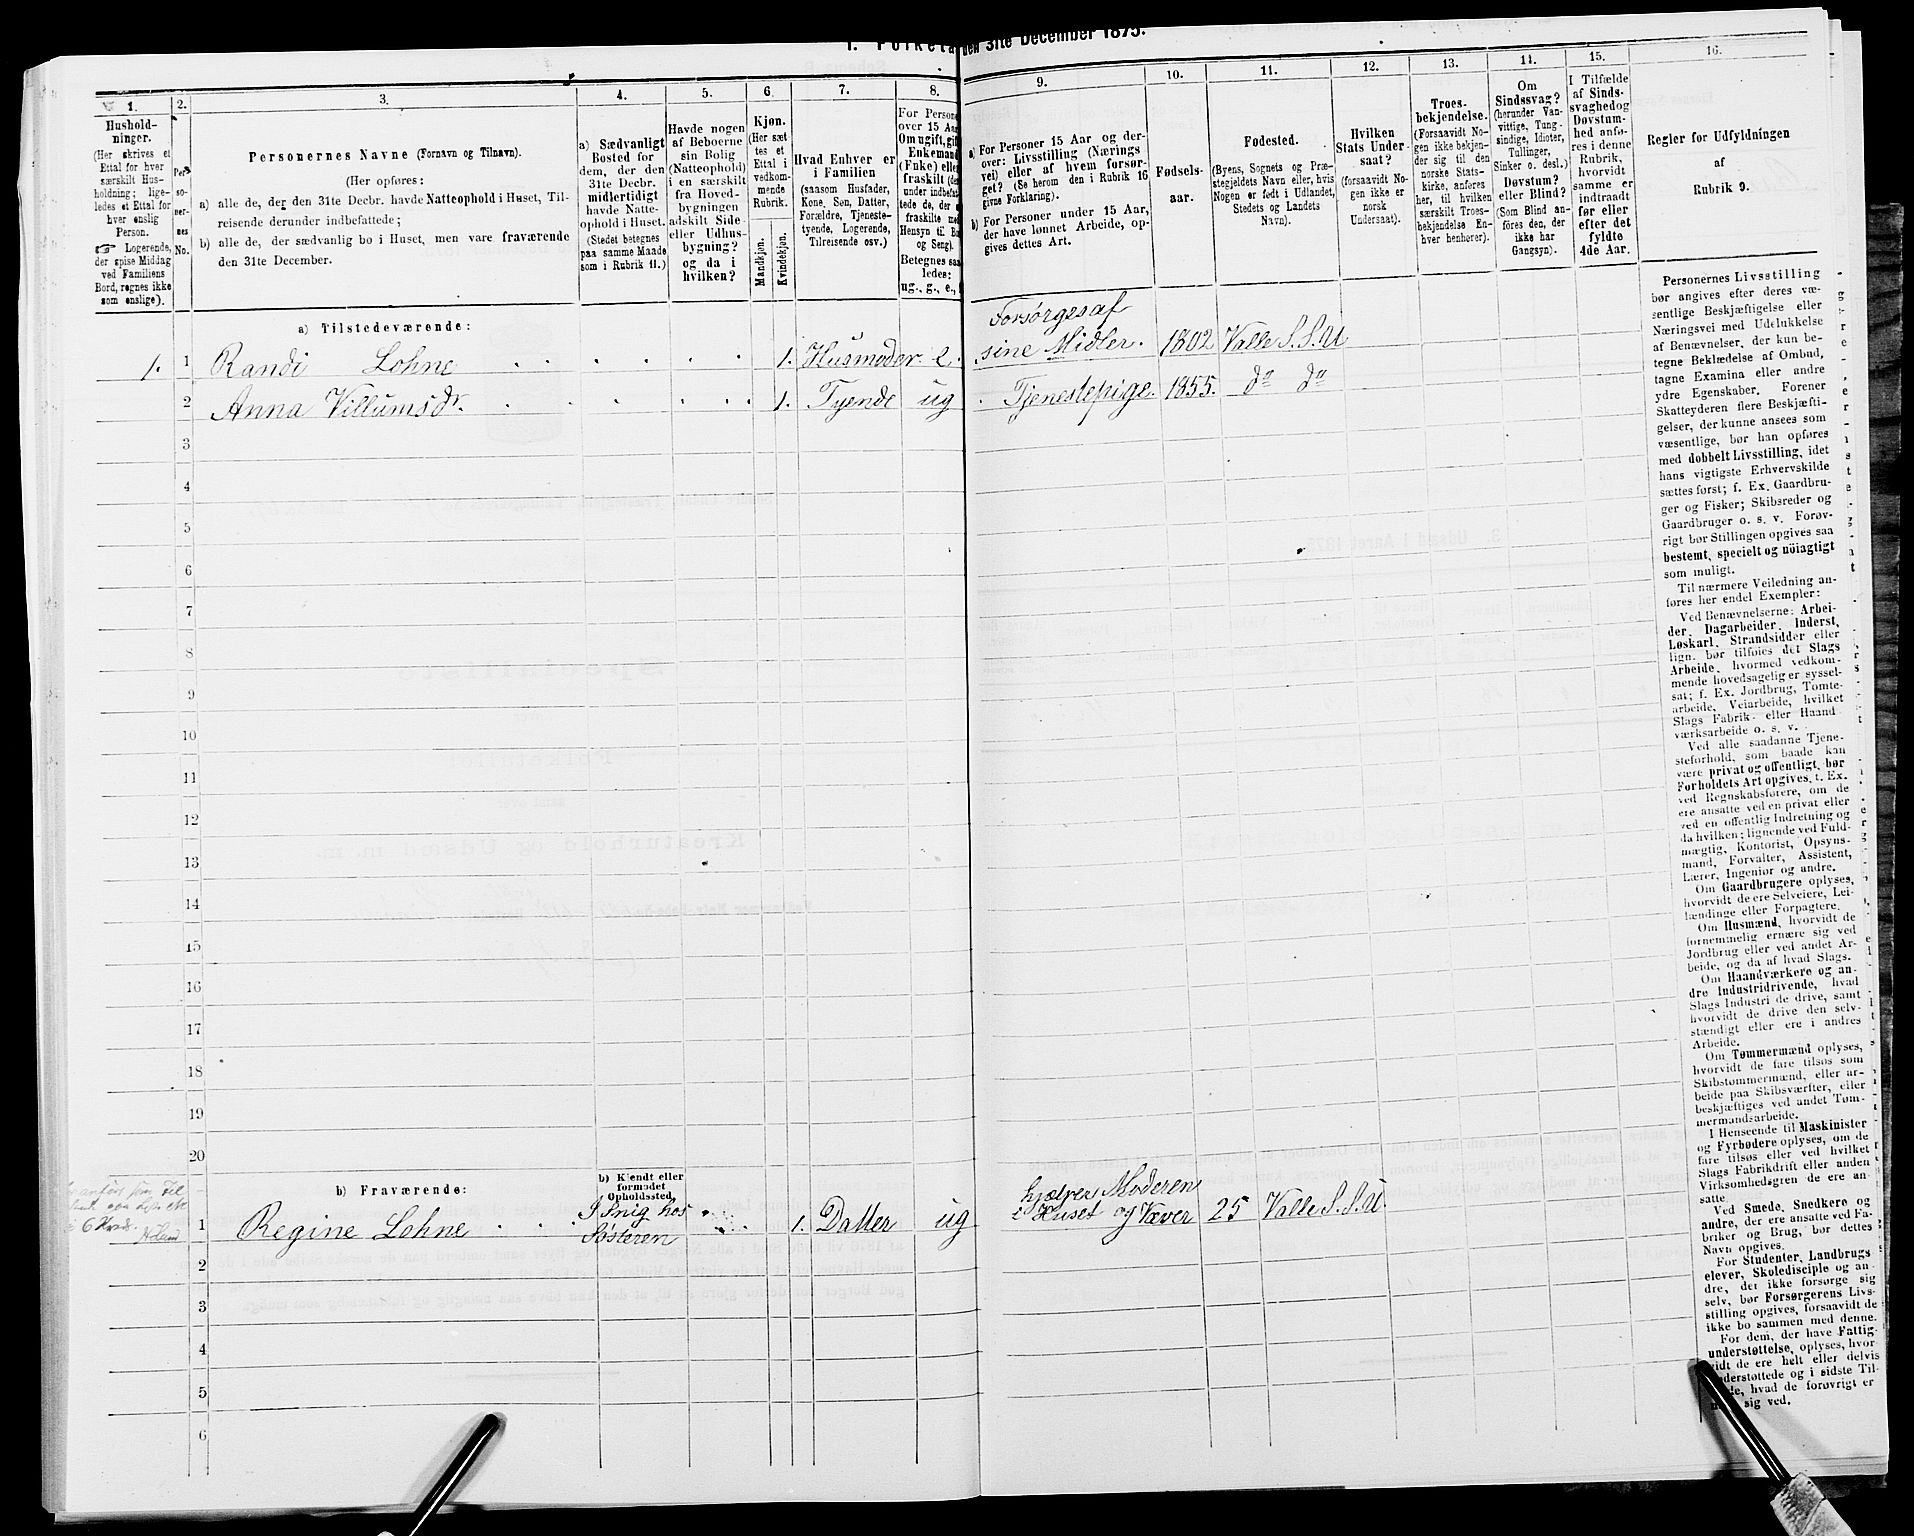 1. Folketæ
den 31te December 1875.
1.
Hushold-
ninger.
(Her skrives et
Ettal for hver
særskilt Hus-
holdning; lige-
ledes et Ettal for
hver enslig
Person.
☞ Logerende,
der spise Middag
ved Familiens
Bord, regnes ikke
som enslige).
2.
Per-
so-
ner-
nes
No.
3.
Personernes Navne (Fornavn og Tilnavn).
(Her opføres:
a) alle de, der den 31te Decbr. havde Natteophold i Huset, Til-
reisende derunder indbefattede;
b) alle de, der sædvanlig bo i Huset, men vare fraværende
den 31te December.
4.
a) Sædvanligt
Bosted for
dem, der den
31te Decbr.
midlertidigt
havde Natte-
ophold i Huset.
(Stedet betegnes
paa samme Maade
som i Rubrik 11.)
5.
Havde nogen
af Beboerne
sin Bolig
(Natteophold)
i en særskilt
fra Hoved-
bygningen
adskilt Side-
eller Udhus-
bygning?
og da i
hvilken?
6.
Kjøn.
(Her sæt-
tes et
Ettal i
vedkom-
mende
Rubrik.
Mandkjøn.
Kvindekjøn.
7.
Hvad Enhver er
i Familien
(saasom Husfader,
Kone, Søn, Datter,
Forældre, Tjeneste-
tyende, Logerende,
Tilreisende osv.)
8.
For Persone
over 15 Aa
Om ugift, gif
Enkemand
(Enke) elle
fraskilt (de
under indbefat
tede de, der e
fraskilte me
Hensyn til Bo
og Seng).
Betegnes saa
ledes:
ug., g., e.,
9.
a) For Personer 15 Aar og der-
over: Livsstilling (Nærings
vei) eller af hvem forsør-
get? (Se herom den i Rubrik 16
givne Forklaring).
b) For Personer under 15 Aar,
der have lønnet Arbeide, op-
gives dettes Art.
10.
Fødsels-
aar.
11.
Fødested.
(Byens, Sognets og Præ-
stegjeldets Navn eller, hvis
Nogen er født i Udlandet,
Stedets og Landets
Navn).
12.
Hvilken
Stats Under-
saat?
(forsaavidt No-
gen ikke er
norsk
Undersaat).
13.
Troes-
bekjendelse.
(Forsaavidt No-
gen ikke bekjen-
der sig til den
norske Stats-
kirke, anføres
her, til hvilken
særskilt Troes-
bekjendelse En-
hver henhører).
14.
Om
Sindssvag?
(herunder Van-
vittige, Tung-
sindige, Idioter,
Tullinger,
Sinker o. desl.)
Døvstum?
eller Blind?
(Som Blind an-
føres den, der
ikke har
Gangsyn).
15.
I Tilfælde
af Sinds-
svaghedog
Døvstum-
hed anfø-
res i denne
Rubrik,
hvorvidt
samme er
indtraadt
før eller
efter det
fyldte
4de Aar.
16.
Regler for Udfyldningen
af
Rubrik 9.
a) Tilstedeværende:
Forsørges af
1. 1 Randi Lohne 1. Husmoder. e. sine Midler. 1802 Valle S. S. U
2 Anna Villumsdr. 1. Tyende ug Tjenestepige. 1855. do do
3
4
5
6
7
8
9
10
11
12
13
14
15
16
17
18
19
20
b) Fraværende:
b) Kjendt eller
formodet
Opholdssted.
hjælper Moderen
1 Regine Lohne S. Snig hos 1. Datter ug i Huset og Væver 25 Valle S. S. U.
Søsteren
2
3
4
5
6
Personernes Livsstilling
bør angives efter deres væ-
sentlige Beskjæftigelse eller
Næringsvei med Udelukkelse
af Benævnelser, der kun be-
tegne Beklædelse af Ombud,
tagne Examina eller andre
ydre Egenskaber. Forener
Skatteyderen flere Beskjæfti-
gelser, der kunne ansees som
væsentlige, bør han opføres
med dobbelt Livsstilling, idet
hans vigtigste Erhvervskilde
sættes først; f. Ex. Gaardbru-
ger og Fisker; Skibsreder og
Gaardbruger o. s. v. Forøv-
rigt bør Stillingen opgives saa
bestemt, specielt og nøiagtigt
som muligt.
Til nærmere Veiledning an-
føres her endel Exempler:
Ved Benævnelserne: Arbei-
der, Dagarbeider, Inderst,
Løskarl, Strandsidder eller
lign. bør tilføies det Slags
Arbeide, hvormed vedkom-
mende hovedsagelig er syssel-
sat; f. Ex. Jordbrug, Tomte-
arbeide, Veiarbeide, hvilket
Slags Fabrik- eller Haand
værksarbeide o. s. v.
Ved alle saadanne Tjene-
steforhold, som baade kan
være privat og offentligt, bør
Forholdets Art opgives, t. Ex.
ved Regnskabsførere, om de
ere ansatte ved en privat eller
ved en offentlig Indretning og
da hvilken; lignende ved Fuld-
mægtig, Kontorist, Opsyns-
mand, Forvalter, Assistent,
Lærer, Ingeniør og andre.
Om Gaardbrugere oplyses,
hvorvidt de ere Selveiere, Lei-
lændinge eller Forpagtere.
Om Husmænd, hvorvidt de
fornemmelig ernære sig ved
Jordbrug eller ved andet Ar-
beide, og da af hvad Slags.
Om Haandværkere og an-
dre Industridrivende, hvad
Slags Industri de drive, samt
hvorvidt de drive den selv-
stændigt eller ere i andres
Arbeide.
Om Tømmermænd oplyses,
hvorvidt de fare tilsøs som
Skibstømmermænd, eller ar-
beide paa Skibsværfter, eller
beskjæftiges ved andet Tøm-
mermandsarbeide.
I Henseende til Maskinister
og Fyrbødere oplyses, om de
fare tilsøs eller ved hvilket
Slags Fabrikdrift eller anden
Virksomhedsgren de ere an-
satte.
Ved Smede, Snedkere og
andre, der ere ansatte ved Fa-
briker og Brug, bør dettes
Navn opgives.
For Studenter, Landbrugs
elever, Skoledisciple og an-
dre, der ikke forsørge sig
selv, bør Forsørgerens Livs-
stilling opgives, forsaavidt de
ikke bo sammen med denne.
For dem, der have Fattig-
understøttelse, oplyses, hvor
vidt de ere helt eller delvis
understøttede og i sidste Til-
de, hvad de forøvrigt er
sig ved.